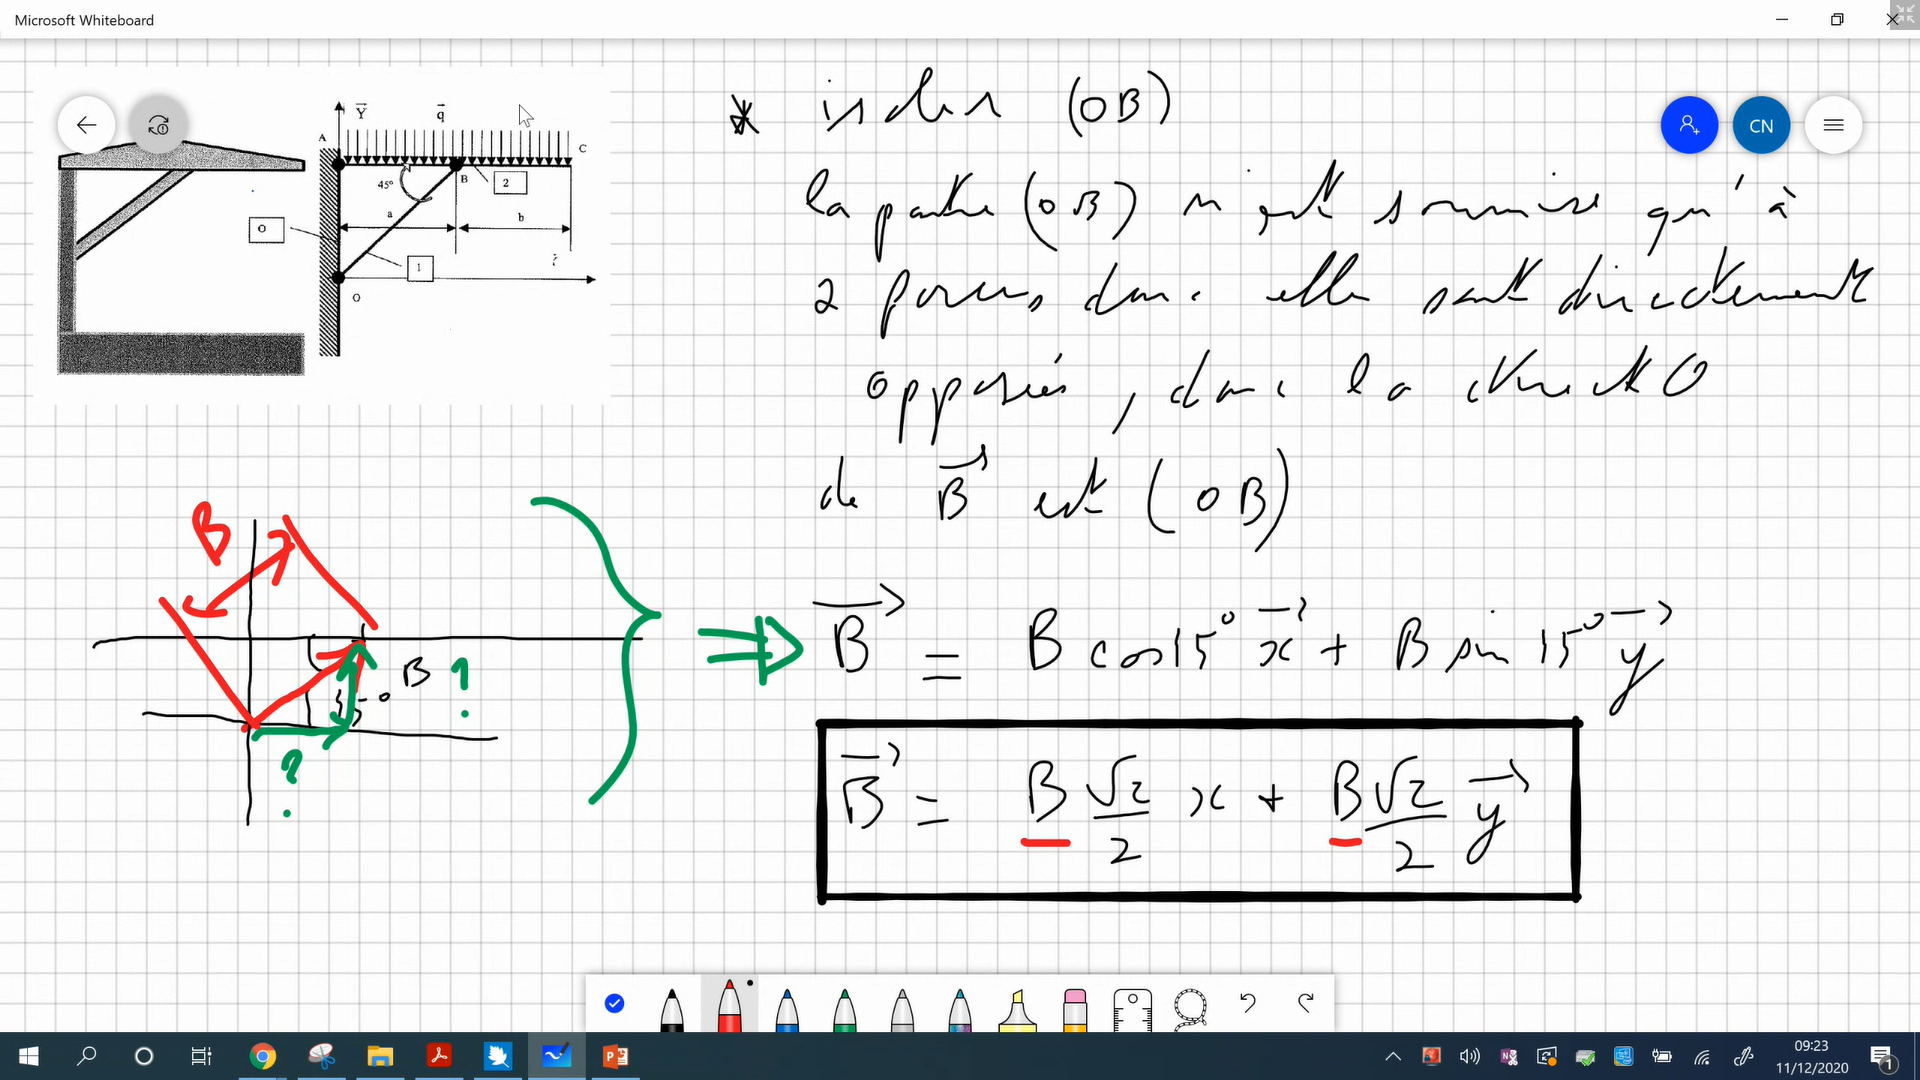 Microsoft Whiteboard
CN
Y
q
A
C
B
45°
2
a
b
O
1
O
* isoler (OB)
la partie (OB) n'est soumise qu'à
2 forces, donc elle sont directement
opposées, donc la direct O
de B est (OB)
B = B cos 45° x + B sin 45° y
B = B √2/2 x + B √2/2 y
B
B
45°
?
?
09:23
11/12/2020
1